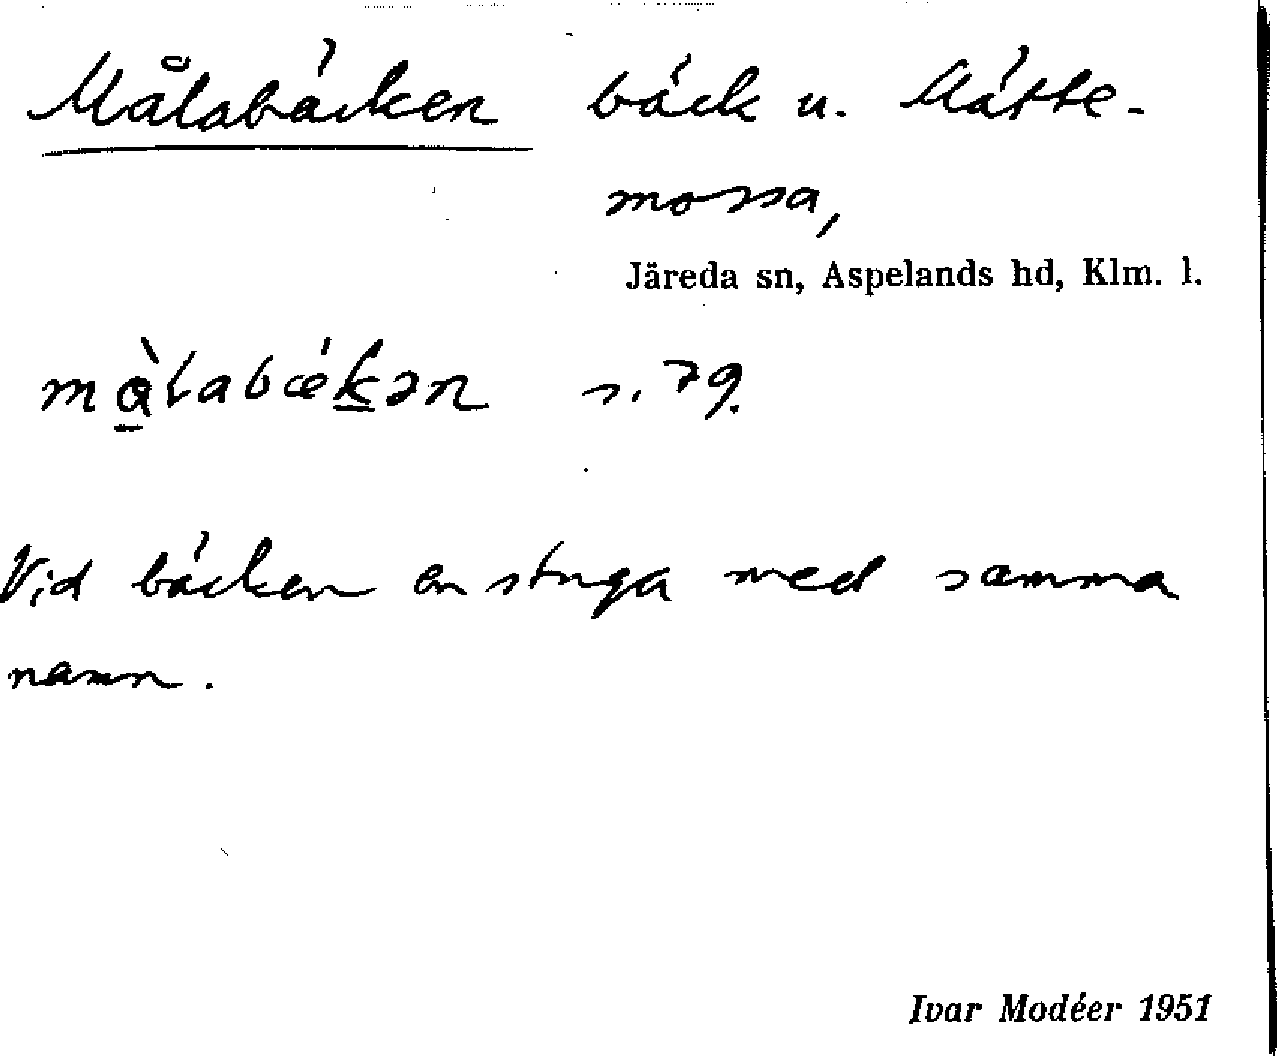 Målabäcken bäck u. Mätte-
mossa,
Järeda sn, Aspelands hd, Klm. l.
mὰ̠labǽk̠ən s. 79.
Vid bäcken en stuga med samma
namn.
Ivar Modéer 1951